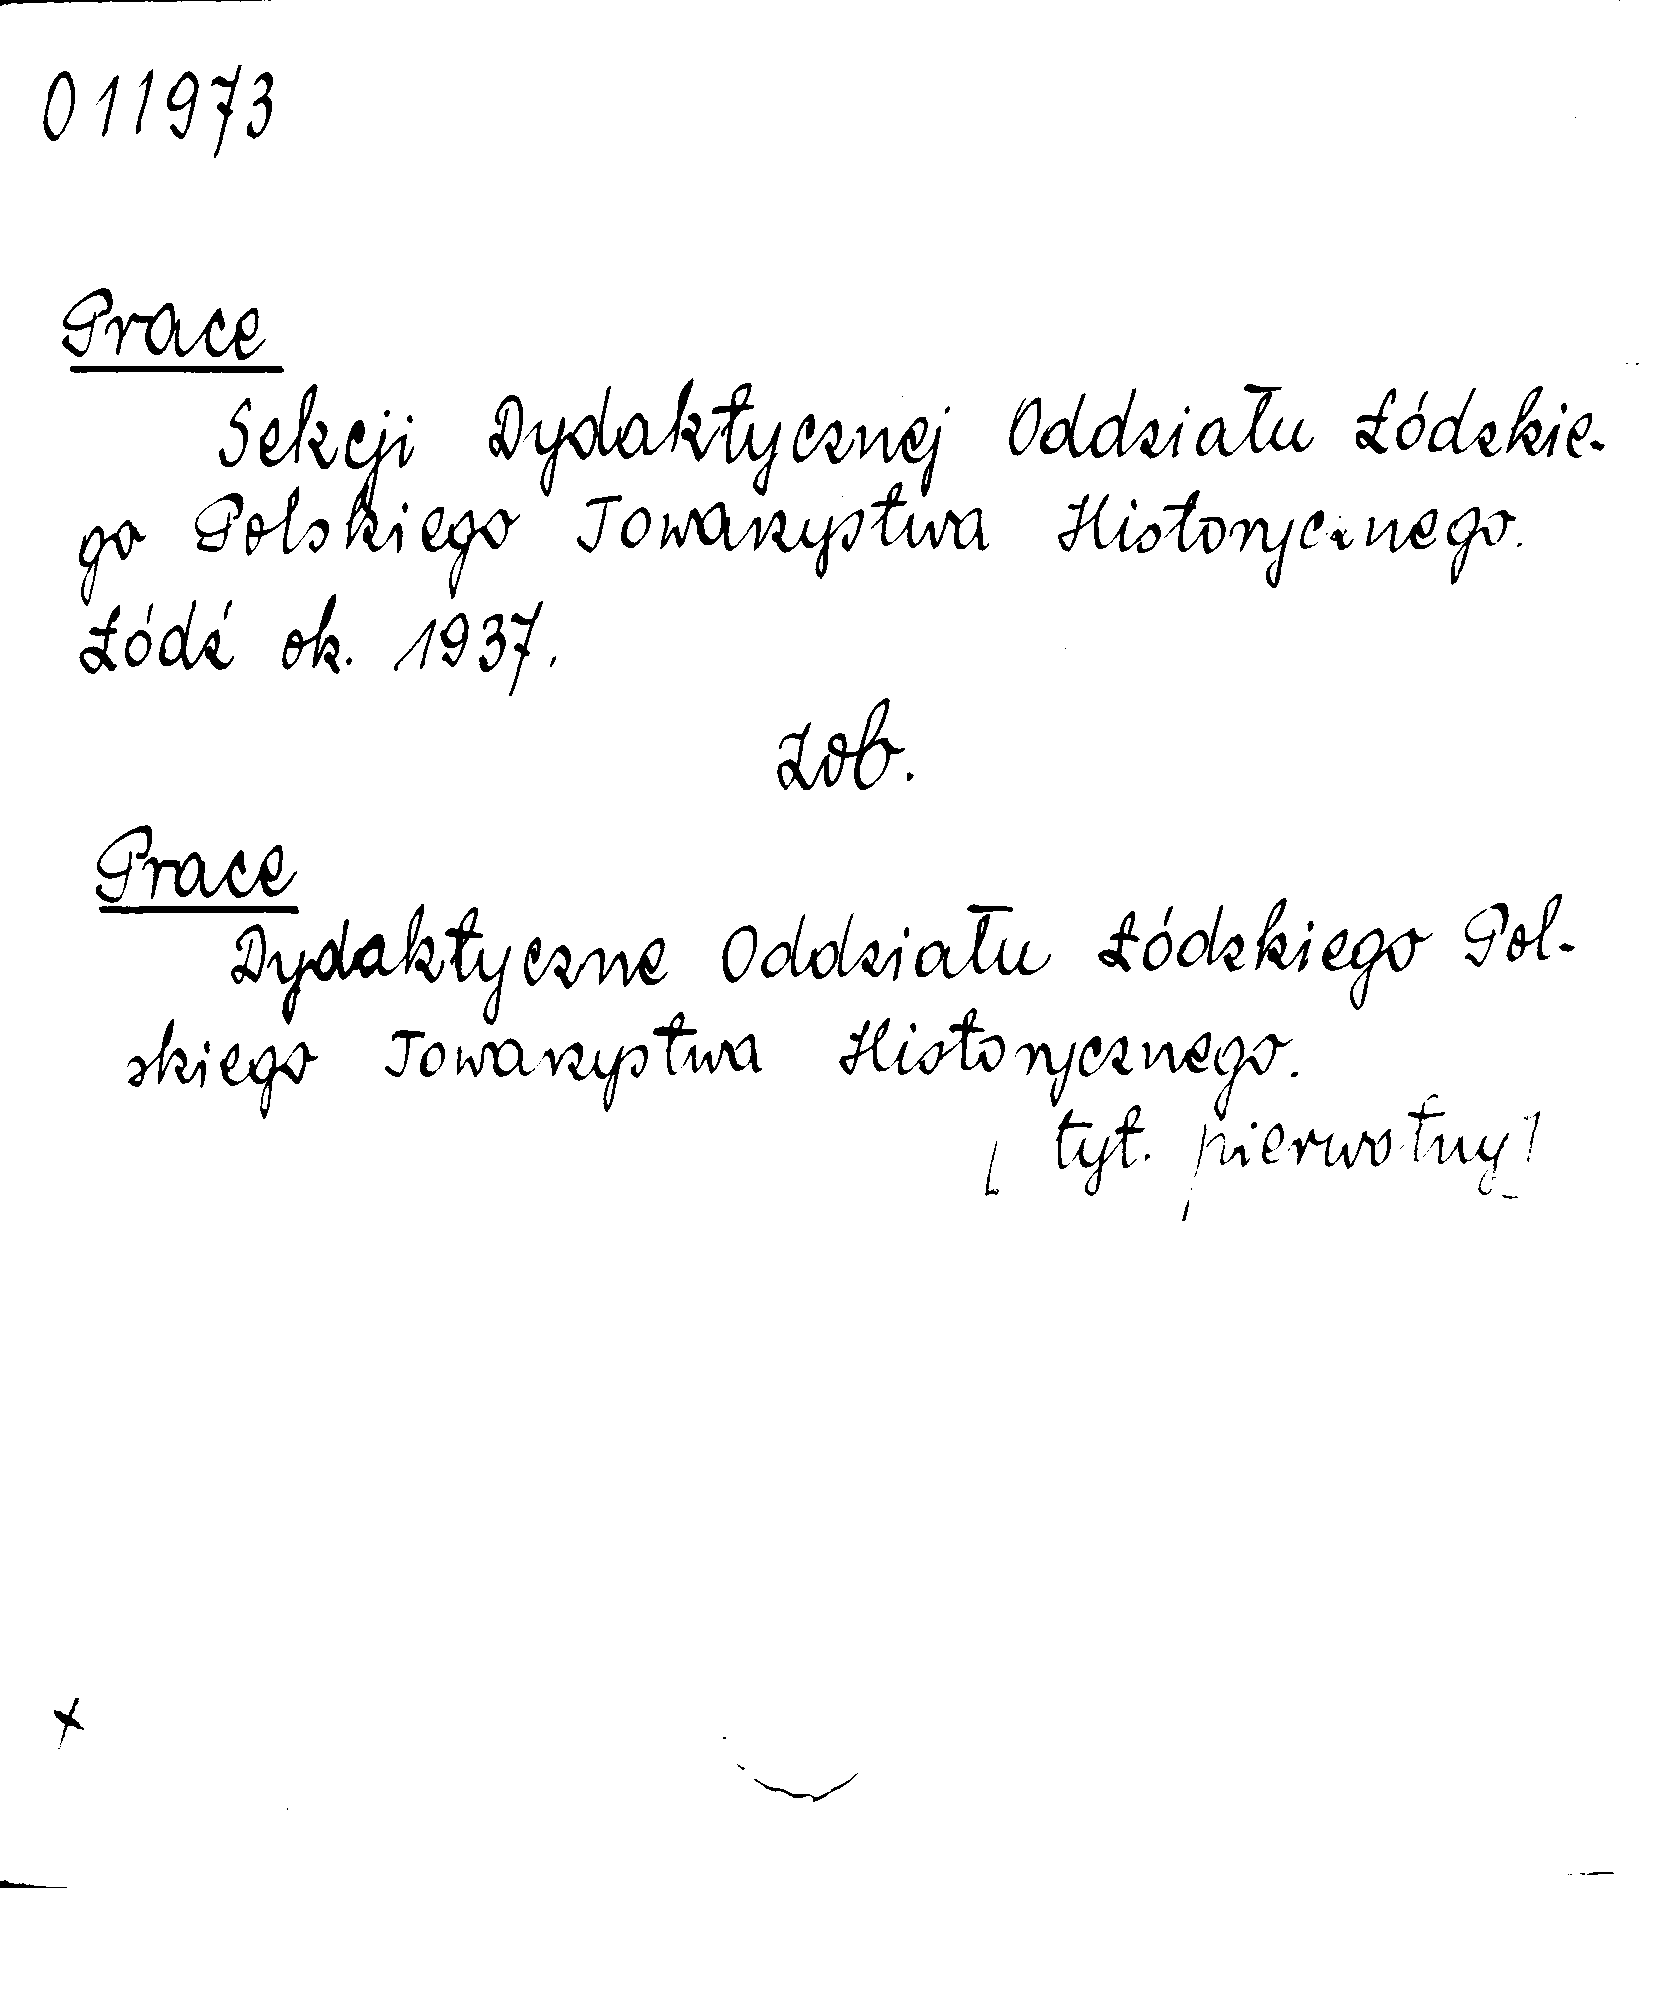 011973
Prace
Sekcji Dydaktycznej Oddziału Łódzkie-
go Polskiego Towarzystwa Historycznego.
Łódź ok. 1937.
Zob.
Prace
Dydaktyczne Oddziału Łódzkiego Pol-
skiego Towarzystwa Historycznego.
[tyt. pierwotny]
x